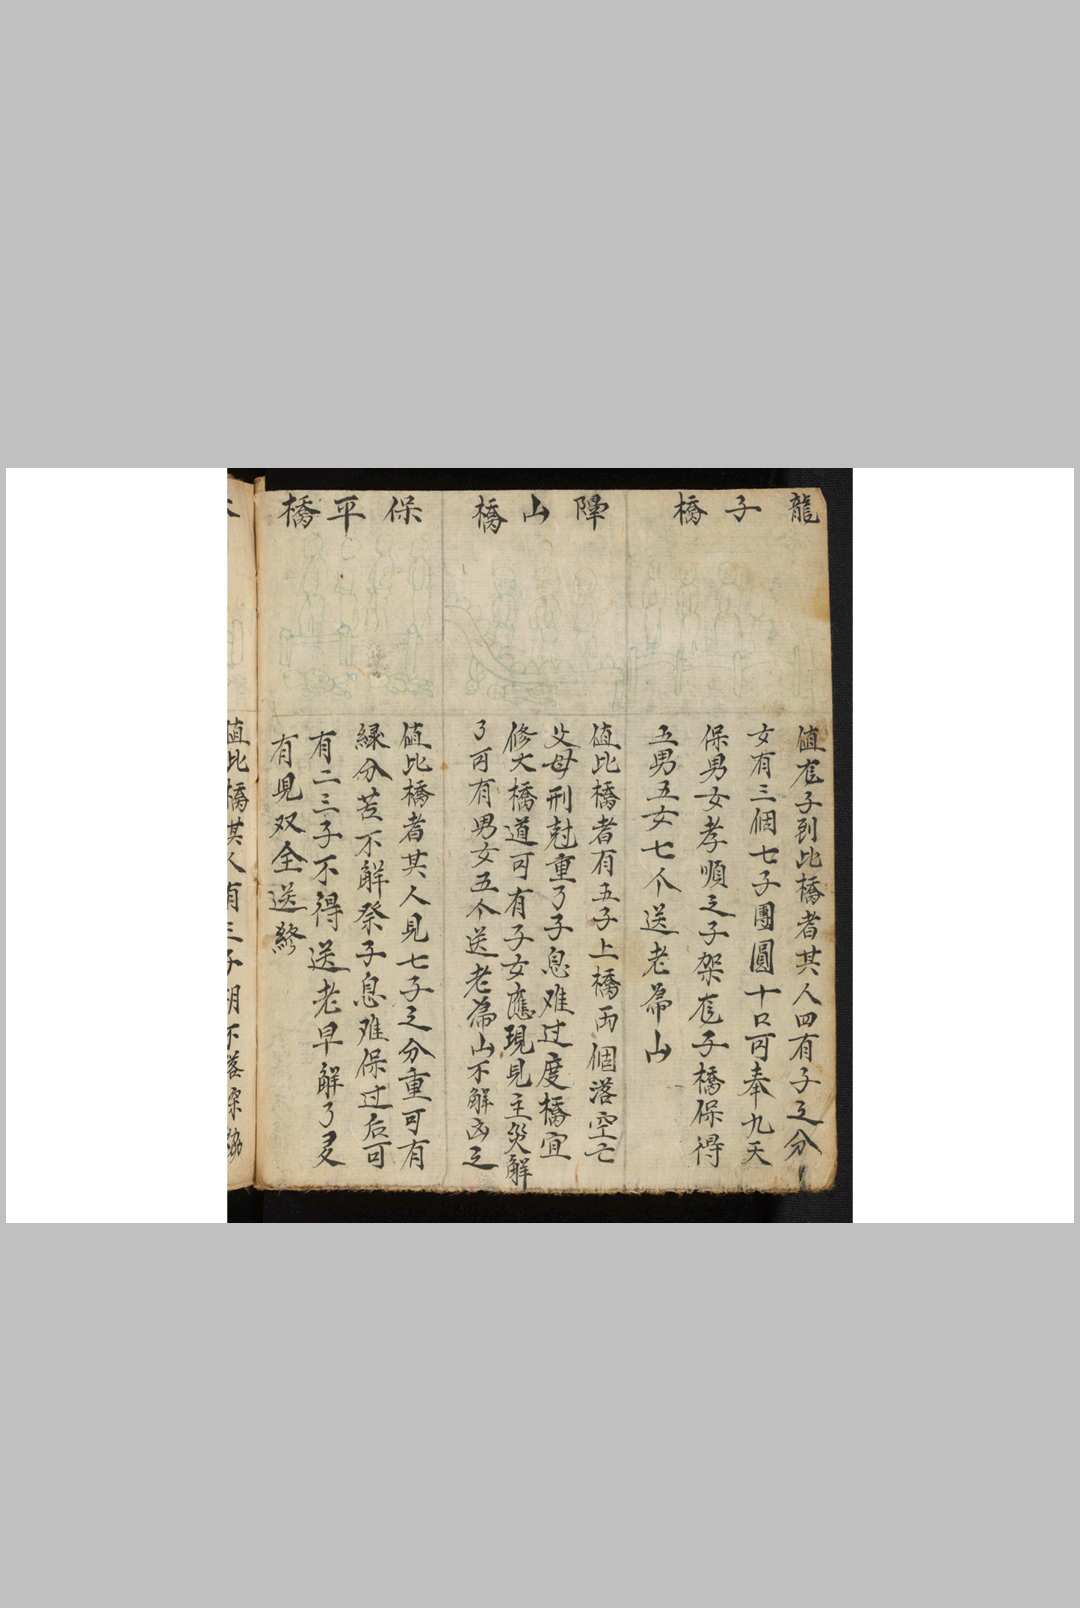 龍子橋
值庬子到比橋者其人四有子之分
女有三個七子團圓十口可奉九天
保男女孝順之子架庬子橋保得
五男五女七个送老歸山
陣山橋
值比橋者有五子上橋兩個落空亡
父母刑尅重了子息难过度橋宜
修大橋道可有子女應現見主災解
了可有男女五个送老歸山不解凶之
保平橋
值比橋者其人見七子之分重可有
緣分苦不解祭子息难保过后可
有二三子不得送老早解了又
有見双全送終
值比橋其人有三子